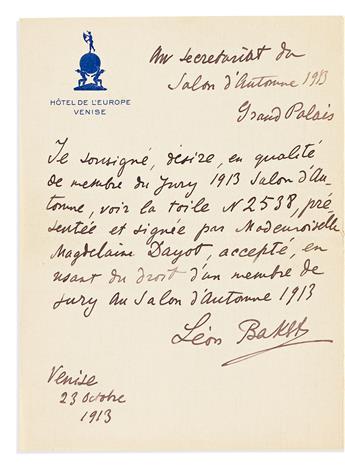 HÔTEL DE L'EUROPE
VENISE
Au secretariat du
Salon d'Automne 1913
Grand Palais
Je soussigné, désire, en qualité
de membre du Jury 1913 Salon d'Au-
tomne, voir la toile N 2538, pré-
sentée et signée par Mademoiselle
Magdelaine Dayot, accepté, en
usant du droit d'un membre de
jury au Salon d'Automne 1913
Léon Bakst
Venise
23 Octobre
1913